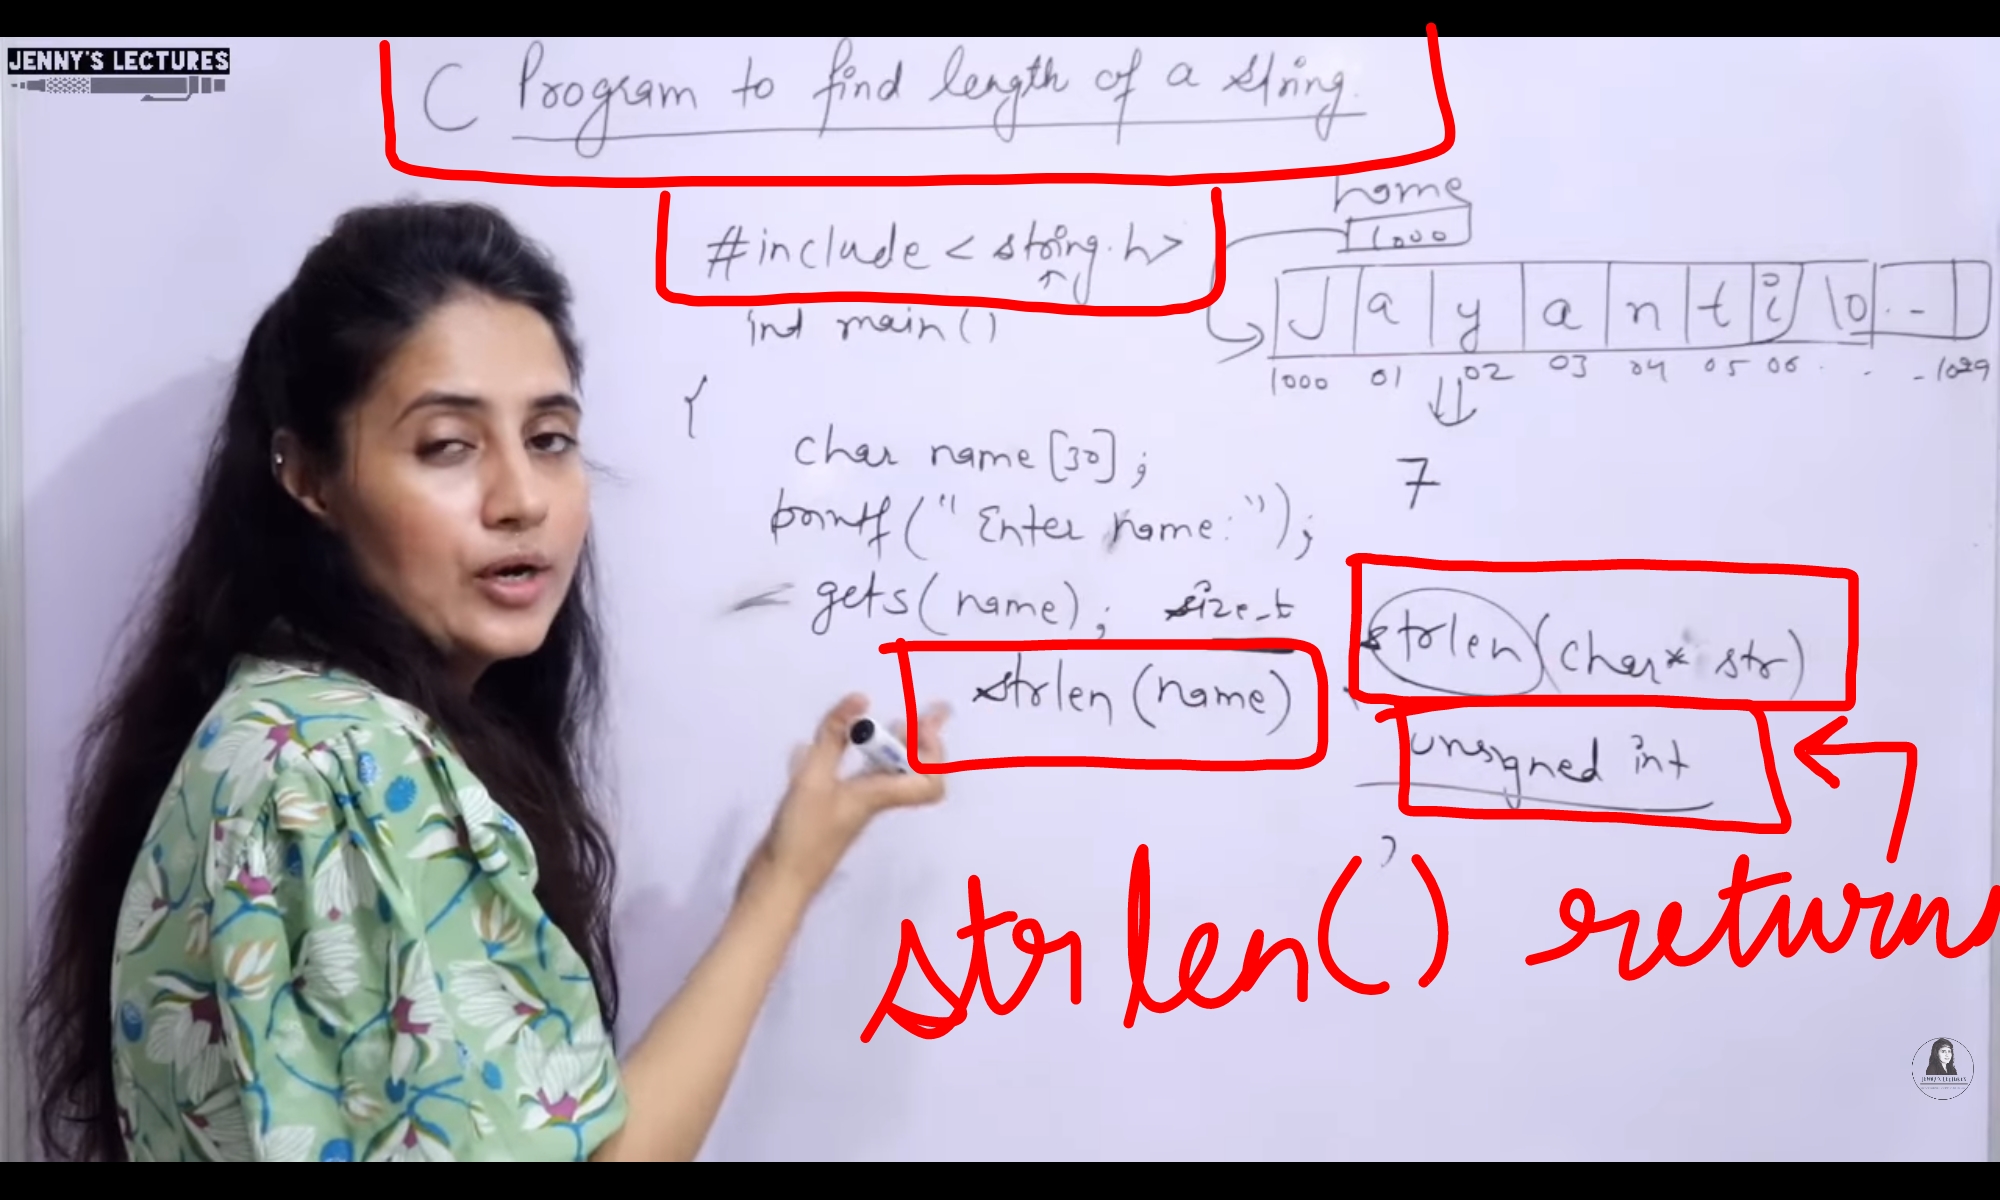 JENNY'S LECTURES
C Program to find length of a string.
#include < string.h>
int main()
{
char name [30];
printf("Enter name:");
gets(name);
size_t
strlen (name)
name
1000
J a y a n t i \0 . -
1000 01 02 03 04 05 06 . . - 1029
7
strlen(char* str)
unsigned int
strlen() returns